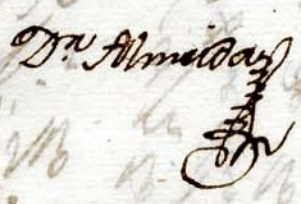 Dn Almeida